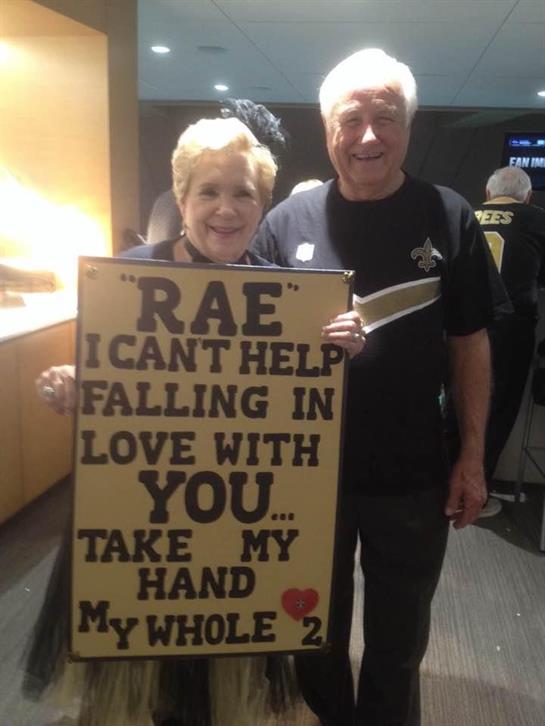 "RAE"
I CAN'T HELP
FALLING IN
LOVE WITH
YOU...
TAKE MY
HAND
MY WHOLE 2
FAN IM
EES